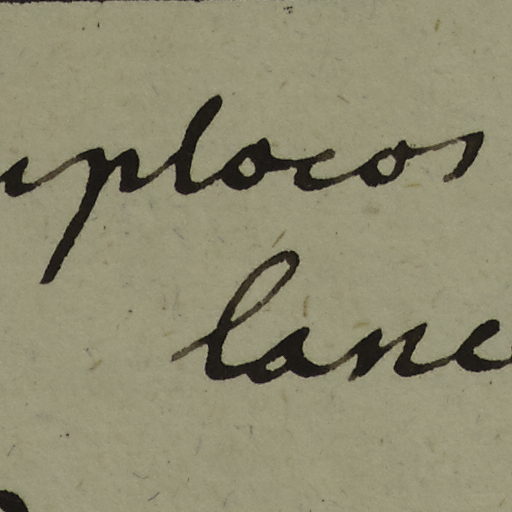 mplocos
lanc